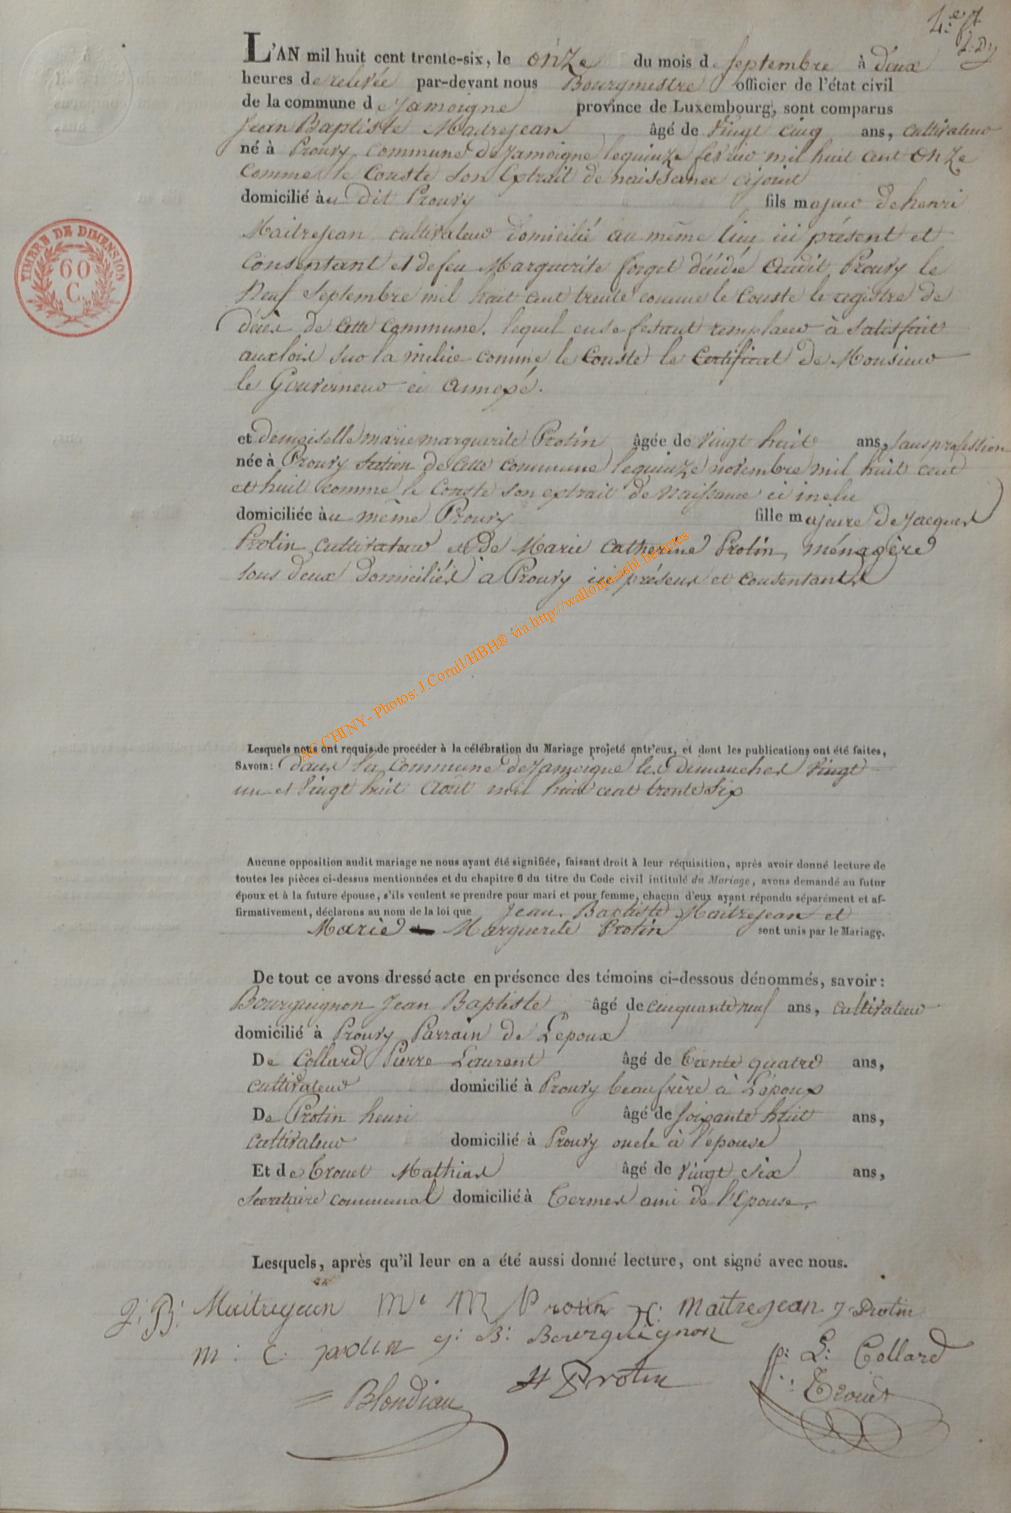 4.e ft
L'AN mil huit cent trente-six, le onze du mois de Septembre à deux
heures de relevée par-devant nous Bourgmestre officier de l'état civil
de la commune de Jamoigne province de Luxembourg, sont comparus
Jean Baptiste Maitrejean âgé de Vingt cinq ans, cultivateur
né à Prouvy commune de Jamoigne le quinze fevrier mil huit cent onze
comme le Conste Son Extrait de naissance cijoint
domicilié au dit Prouvy fils majeur de henri
Maitrejean cultivateur domicilié au même lieu ici présent et
consentant et de feu Marguerite forget décédée audit Prouvy le
Neuf Septembre mil huit cent trente comme le Conste le registre de
décès de cette Commune. lequel en se fesant remplacer à Satisfait
aux lois sur la milice comme le Conste le Certificat de Monsieur
le Gouverneur ci annexé.
et demoiselle marie marguerite Protin âgée de Vingt huit ans, Sans profession
née à Prouvy Section de cette commune le quinze novembre mil huit cent
et huit comme le Conste son extrait de Naissance ci inclu
domiciliée au meme Prouvy fille majeure de Jacques
Protin cultivateur et de Marie Catherine Protin, ménagère
tous deux domiciliés à Prouvy ici présens et consentants
AC CHINY - Photos: J.Cornil/HBH® via http://wallonica.sbl.be/actes
Lesquels nous ont requis de procéder à la célébration du Mariage projeté entr'eux, et dont les publications ont été faites,
SAVOIR: dans la Commune de Jamoigne les Dimanches Vingt
un et Vingt huit Août mil huit cent trente Six
Aucune opposition audit mariage ne nous ayant été signifiée, faisant droit à leur réquisition, après avoir donné lecture de
toutes les pièces ci-dessus mentionnées et du chapitre 6 du titre du Code civil intitulé du Mariage, avons demandé au futur
époux et à la future épouse, s'ils veulent se prendre pour mari et pour femme, chacun d'eux ayant répondu séparément et af-
firmativement, déclarons au nom de la loi que Jean Baptiste Maitrejean et
Marie Marguerite Protin sont unis par le Mariage.
De tout ce avons dressé acte en présence des témoins ci-dessous dénommés, savoir:
Bourguignon Jean Baptiste, âgé de cinquante neuf ans, cultivateur
domicilié à Prouvy Parrain de L'epoux
De Collard Pierre Laurent âgé de Trente quatre ans,
cultivateur domicilié à Prouvy beau frère à L'époux
De Protin henri âgé de Soixante huit ans,
Cultivateur domicilié à Prouvy oncle à l'épouse
Et de Trouet Mathias âgé de Vingt six ans,
Secretaire communal domicilié à Termes ami de l'Epouse.
Lesquels, après qu'il leur en a été aussi donné lecture, ont signé avec nous.
J: B: Maitrejean M. M Protin H: Maitrejean J Protin
M: C. Protin J: B: Bourguignon
P: L: Collard
H Protin
Blondiau
Trouet
TIMBRE DE DIMENSION
60
C.